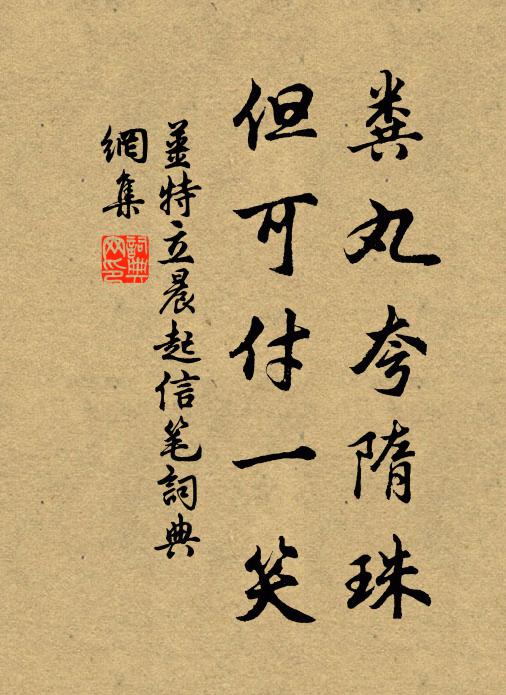 糞丸夸隋珠
但可付一笑
姜特立晨起信笔詞典
網集
詞典网印